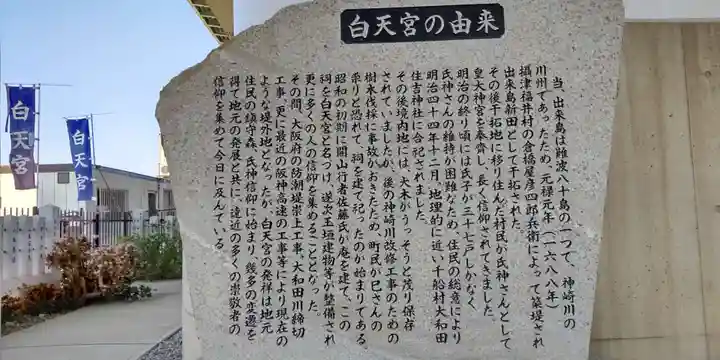 白天宮の由来
当、出来島は難波八十島の一つで、神崎川の
川州であったため、元禄元年(一六八八年)
攝津福井村の倉橋屋彦四郎兵衛によって築堤され
出来島新田として干拓された。
その後干拓地に移り住んだ村民が氏神さんとして
皇大神宮を奉齋し、長く信仰されてきました。
明治の終り頃には氏子が三十七戸しかなく
氏神さんの維持が困難なため、住民の総意により
明治四十四年十二月、地理的に近い千船村大和田
住吉神社に合祀されました。
その後境内地には、大木がうっそうと茂り保存
されていましたが、後の神崎川改修工事のための
樹木伐採に事故がおきたため、町民が巳さんの
祟りと恐れて、祠を建て祀ったのが始まりである。
昭和の初期に開山行者佐藤氏が庵を建て、この
祠を白天宮と名づけ、逐次玉垣建物等が整備され
更に多くの人の信仰を集めることとなった。
その間、大阪府の防潮堤嵩上工事、大和田川締切
工事、更に最近の阪神高速の工事等により現在の
ような堤外地となったが、白天宮の発祥は地元
住民の鎮守森、氏神信仰に始まり、幾多の変遷を
得て地元の発展と共に、遠近の多くの崇敬者の
信仰を集めて今日に及んでいる。
白天宮
白天宮